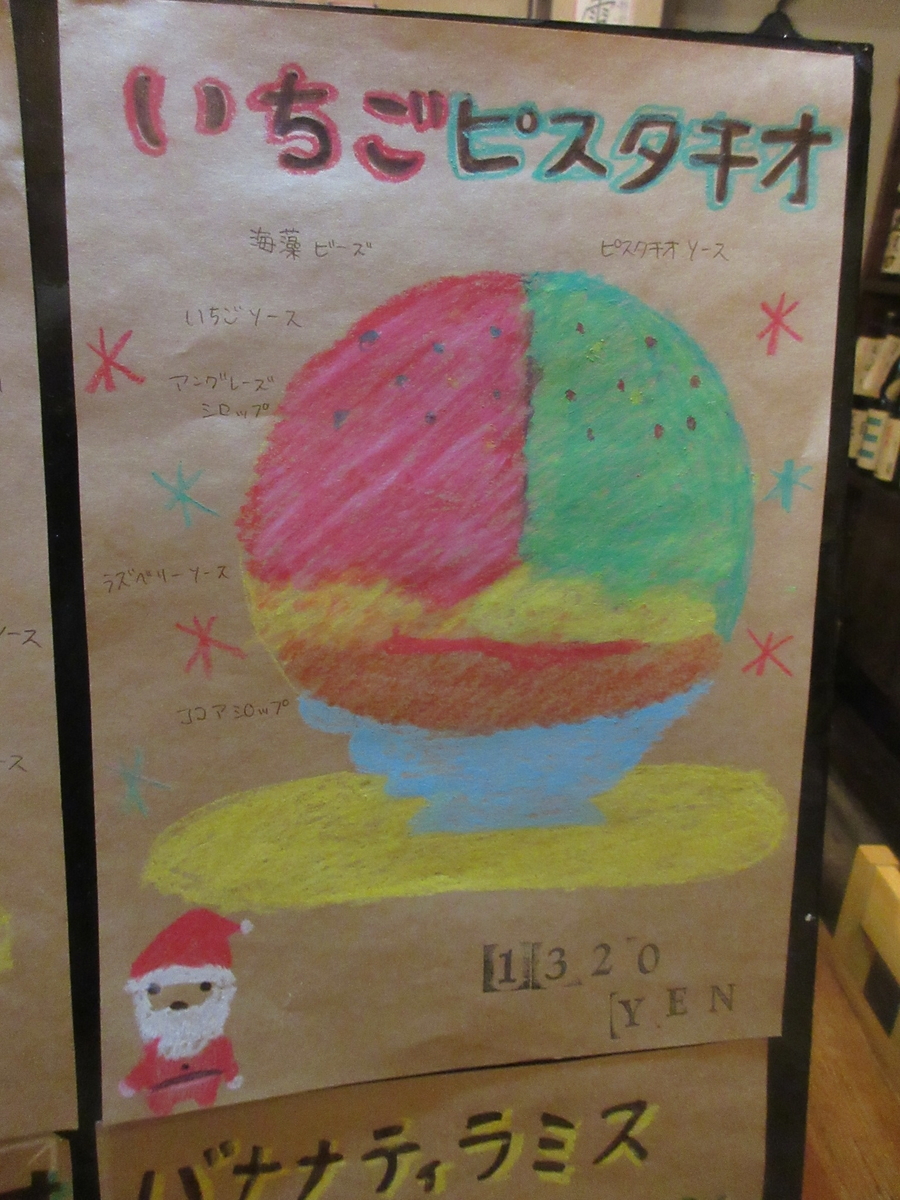 いちごピスタチオ
海藻ビーズ
ピスタチオソース
いちごソース
アングレーズ
シロップ
ラズベリーソース
ココアシロップ
ース
ース
1320
YEN
バナナティラミス